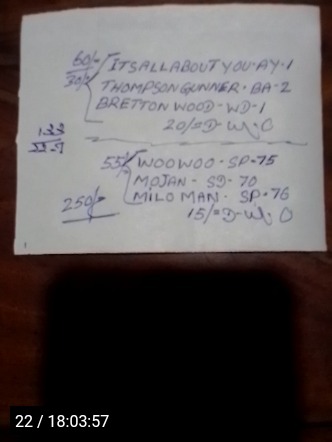 60/=
30/=
ITSALLABOUTYOU-AY-1
THOMPSONGUNNER-BA-2
BRETTON WOOD-WD-1
20/=D-W/C
133
55/- WOOWOO-SP-75
MOJAN-SD-70
250/= MILOMAN-SP-76
15/=D-W/C
22 / 18:03:57